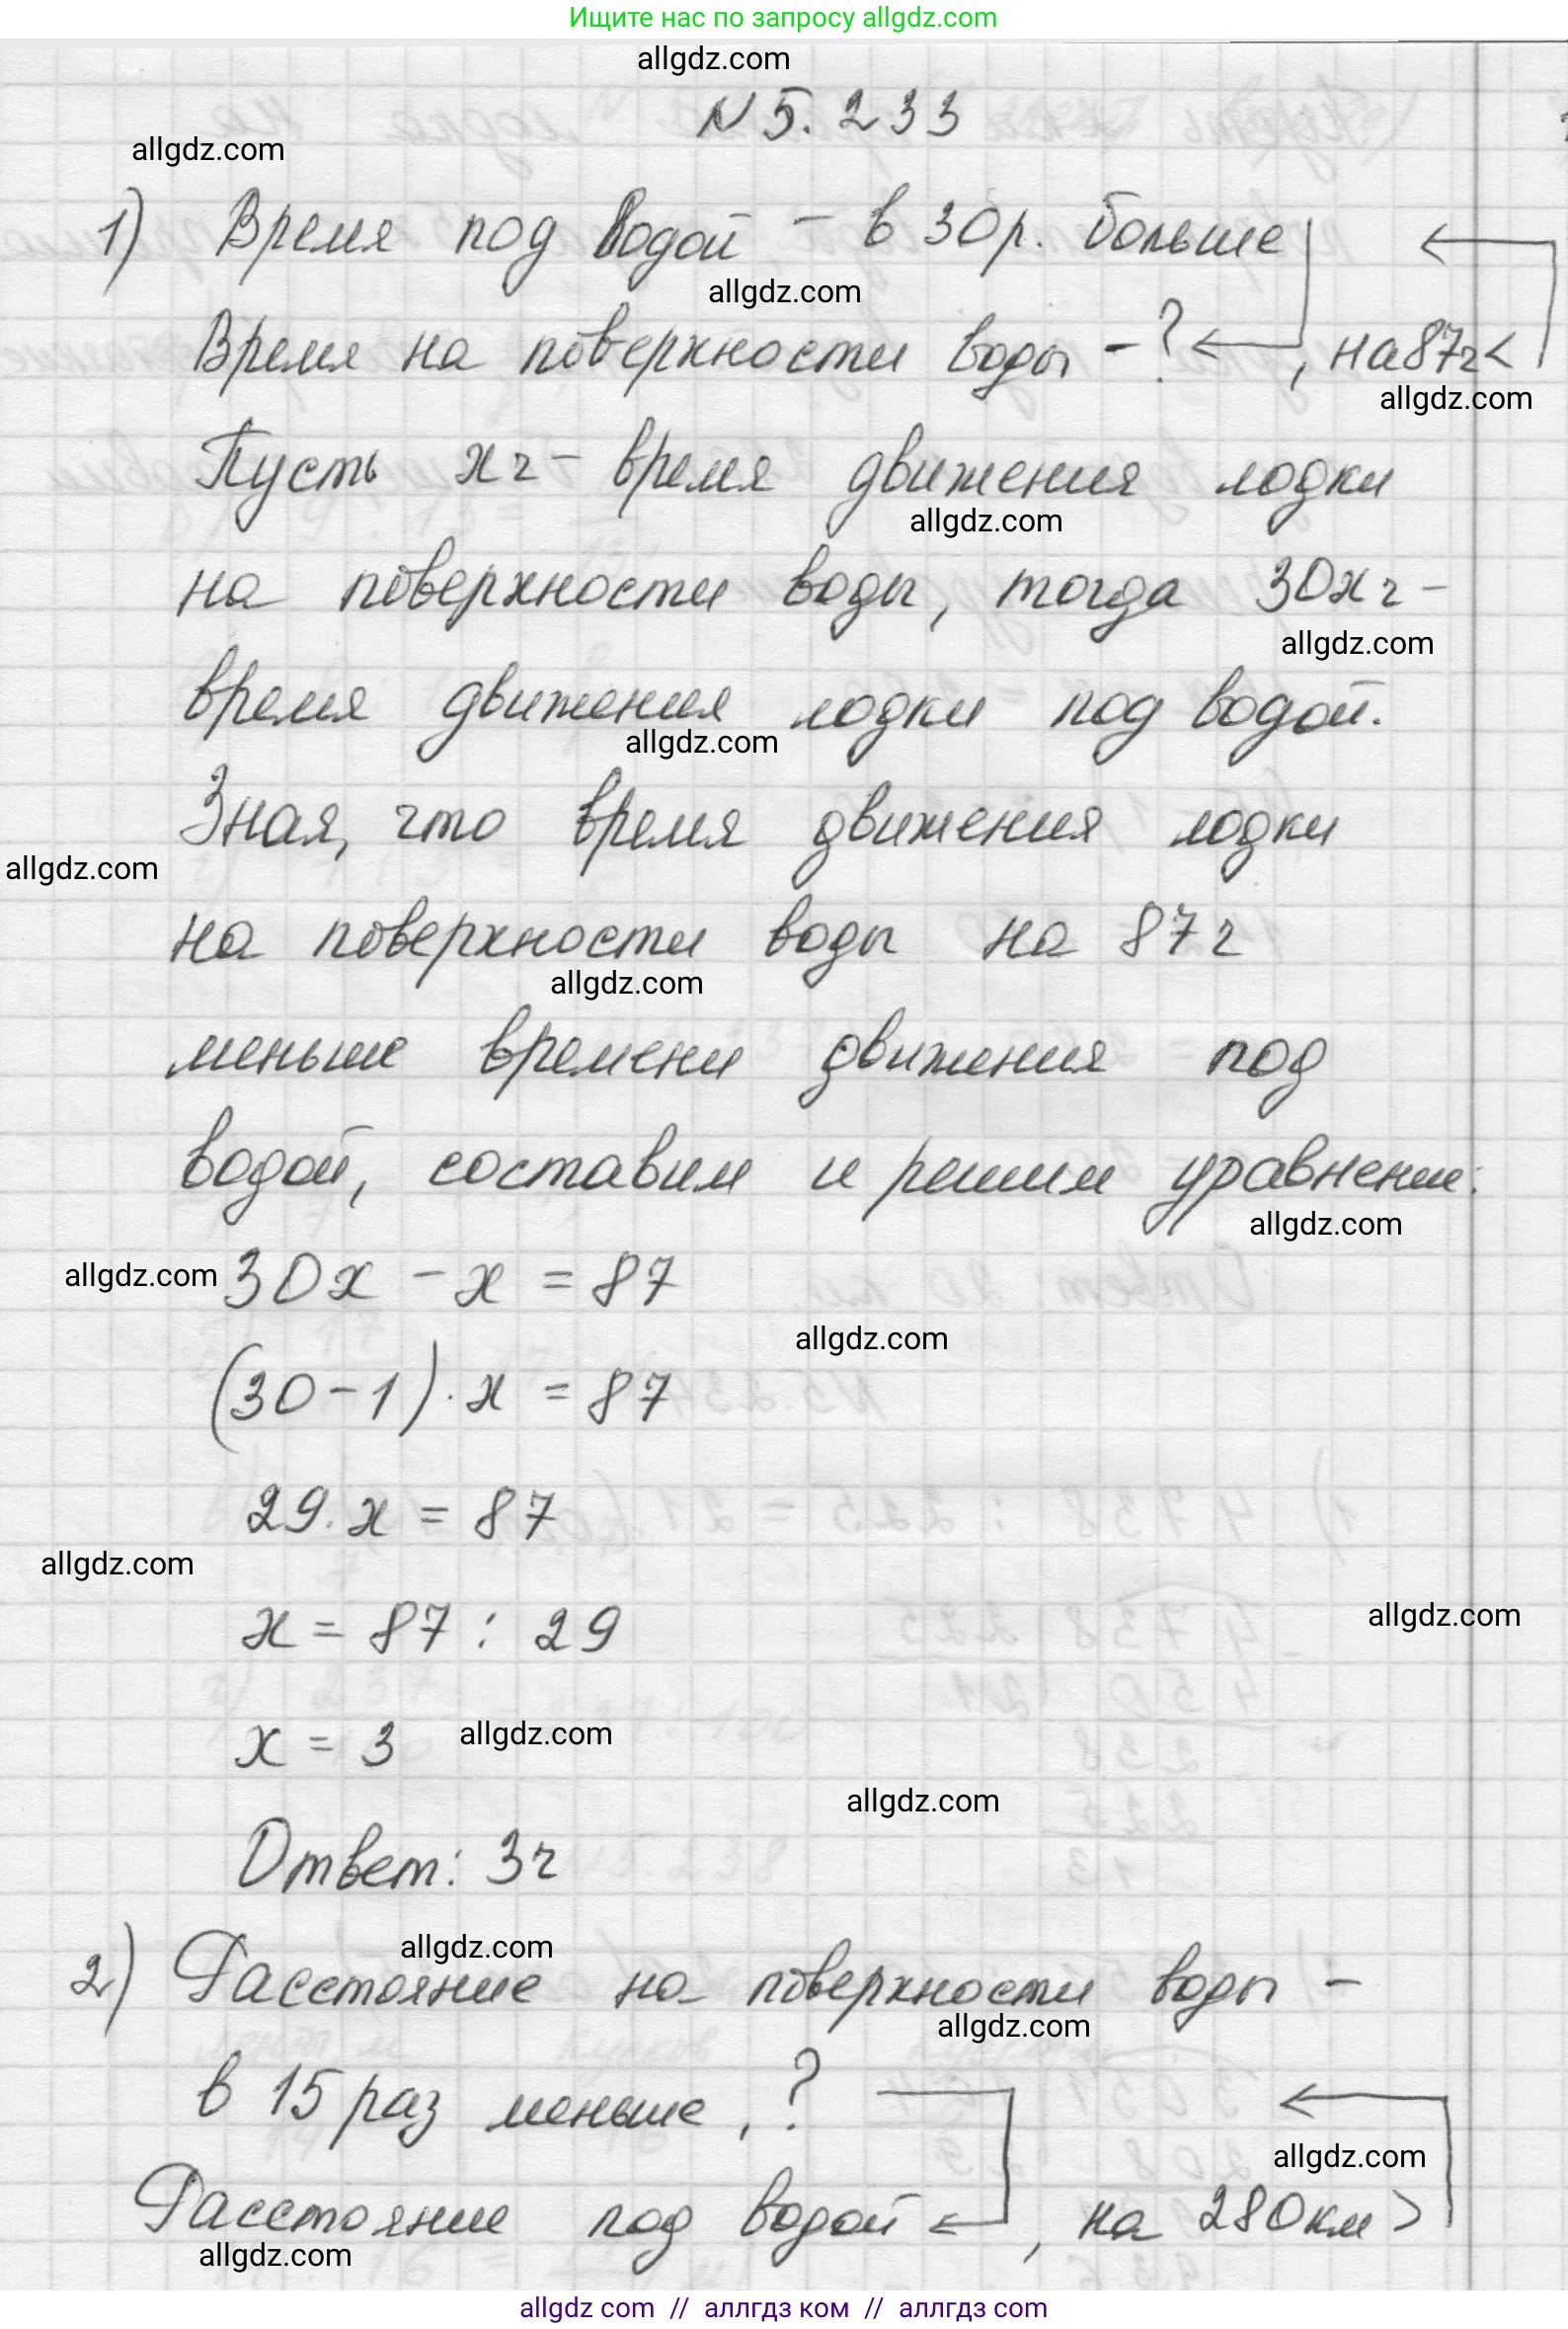 Ищите нас по запросу allgdz.com
allgdz.com
N 5. 233
allgdz.com
1) Время под водой – в 30 р. больше
allgdz.com
Время на поверхности воды – ? , на 87ч <
allgdz.com
Пусть x ч – время движения лодки
allgdz.com
на поверхности воды, тогда 30x ч –
allgdz.com
время движения лодки под водой.
allgdz.com
Зная, что время движения лодки
allgdz.com
на поверхности воды на 87 ч
allgdz.com
меньше времени движения под
водой, составим и решим уравнение:
allgdz.com
allgdz.com 30x – x = 87
allgdz.com
(30 – 1) · x = 87
29 · x = 87
allgdz.com
allgdz.com
x = 87 : 29
x = 3 allgdz.com
allgdz.com
Ответ: 3ч
allgdz.com
2) Расстояние на поверхности воды –
allgdz.com
в 15 раз меньше, ?
allgdz.com
Расстояние под водой , на 280 км >
allgdz.com
allgdz com // аллгдз ком // аллгдз com